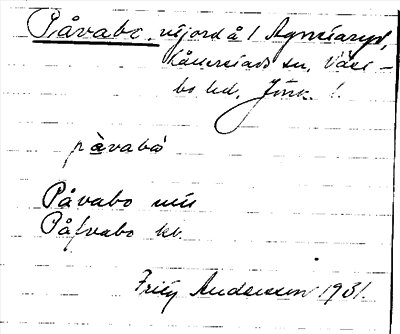 Påvabo, nijord å 1 Agnesaryd,
Kånsniads sn, Väse-
bo hd, Jönk. l.
påvabo
Påvabo
Påfvabo kb.
Fritz Andersson 1931.